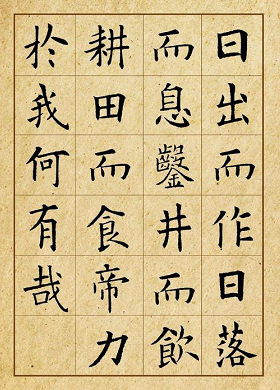 日出而作日落
而息鑿井而飲
耕田而食帝力
於我何有哉